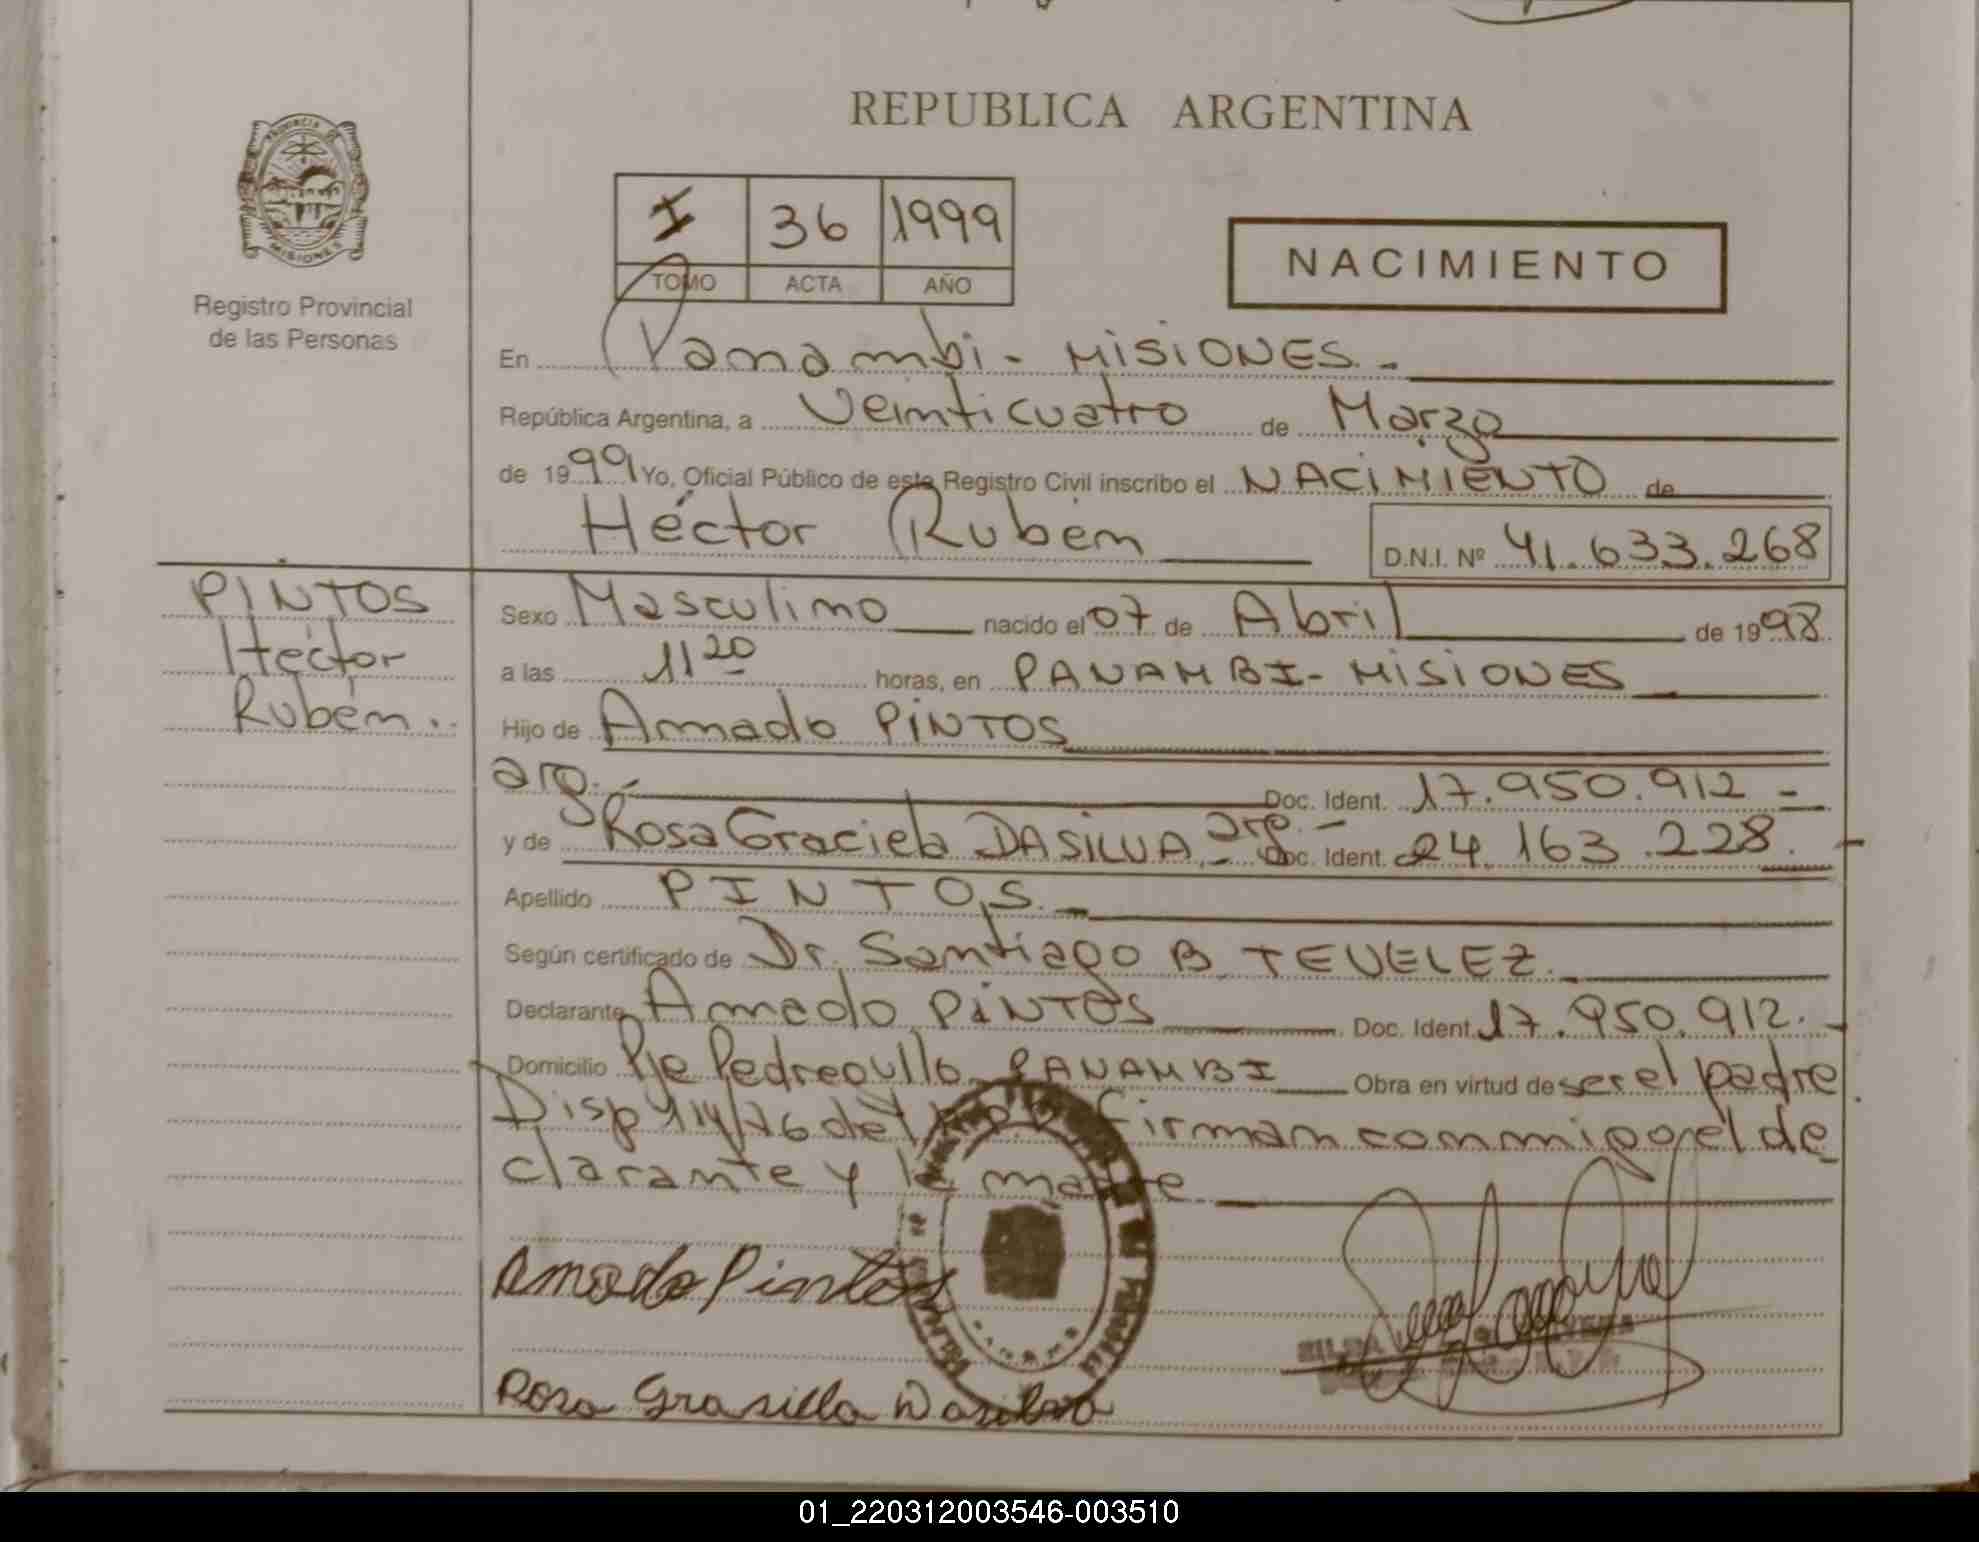 REPUBLICA ARGENTINA
PROVINCIA DE
MISIONES
Registro Provincial
de las Personas
I 36 1999
TOMO ACTA AÑO
NACIMIENTO
En Panambi - MISIONES.-
República Argentina, a Veinticuatro de Marzo
de 1999 Yo, Oficial Público de este Registro Civil inscribo el NACIMIENTO de
Héctor Rubén D.N.I. Nº 41.633.268
PINTOS
Héctor
Rubén..
Sexo Masculino nacido el 07 de Abril de 1998
a las 11 20 horas, en PANAMBI - MISIONES
Hijo de Amado PINTOS
arg.- Doc. Ident. 17.950.912 -
y de Rosa Graciela DASILVA.- arg.- Doc. Ident. 24.163.228.-
Apellido PINTOS.-
Según certificado de Dr. Santiago B TEVELEZ.
Declarante Amado PINTOS Doc. Ident. 17.950.912.-
Domicilio Pje Pedregullo PANAMBI Obra en virtud de ser el padre
Disp 114/76 del firman conmigo, el de
clarante y la madre
Amado Pintos
PANAMBI
Rosa Grasiella Dasilva
01_220312003546-003510